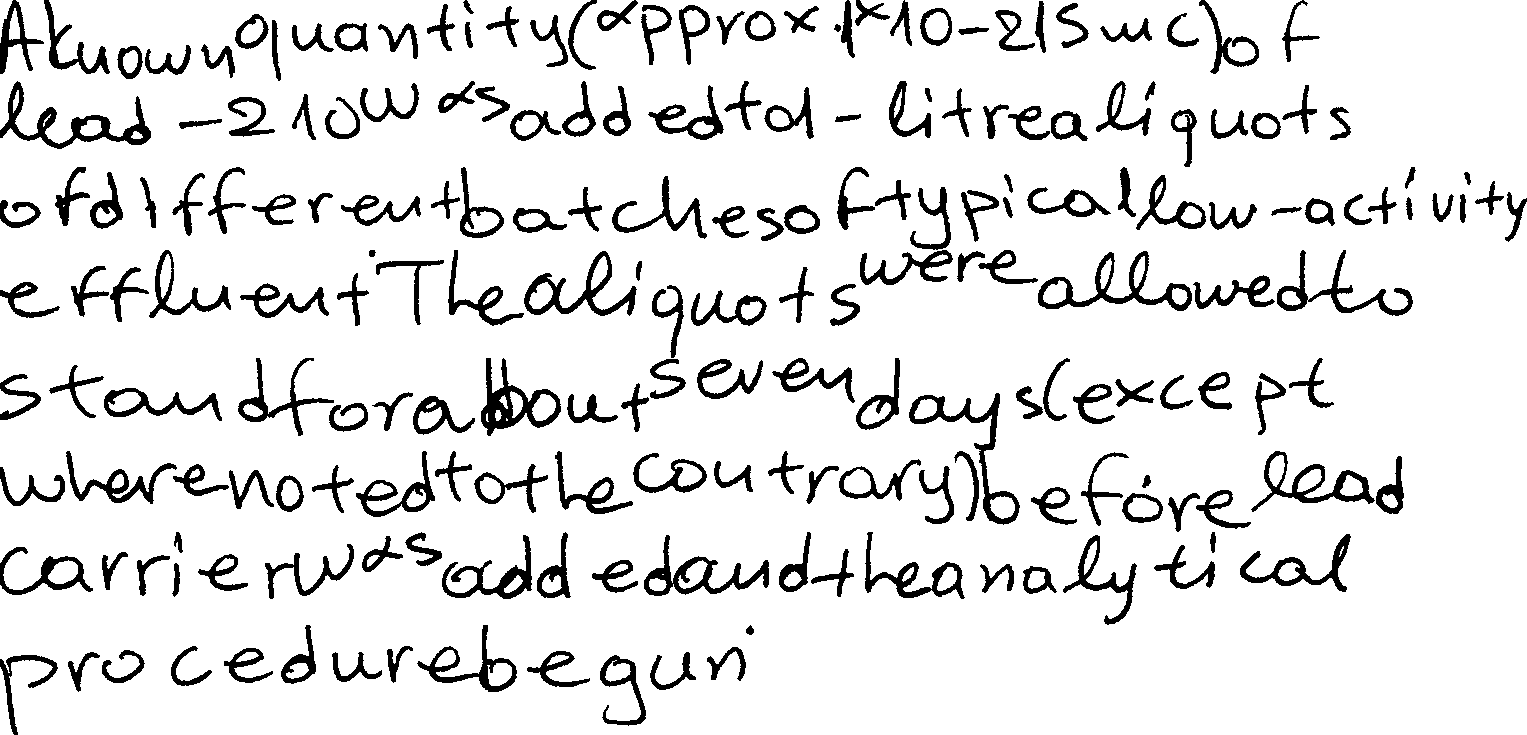 A known quantity (approx. 1×10-215mc) of
lead-210 was added to 1-litre aliquots
of different batches of typical low-activity
effluent. The aliquots were allowed to
stand for about seven days (except
where noted to the contrary) before lead
carrier was added and the analytical
procedure begun.